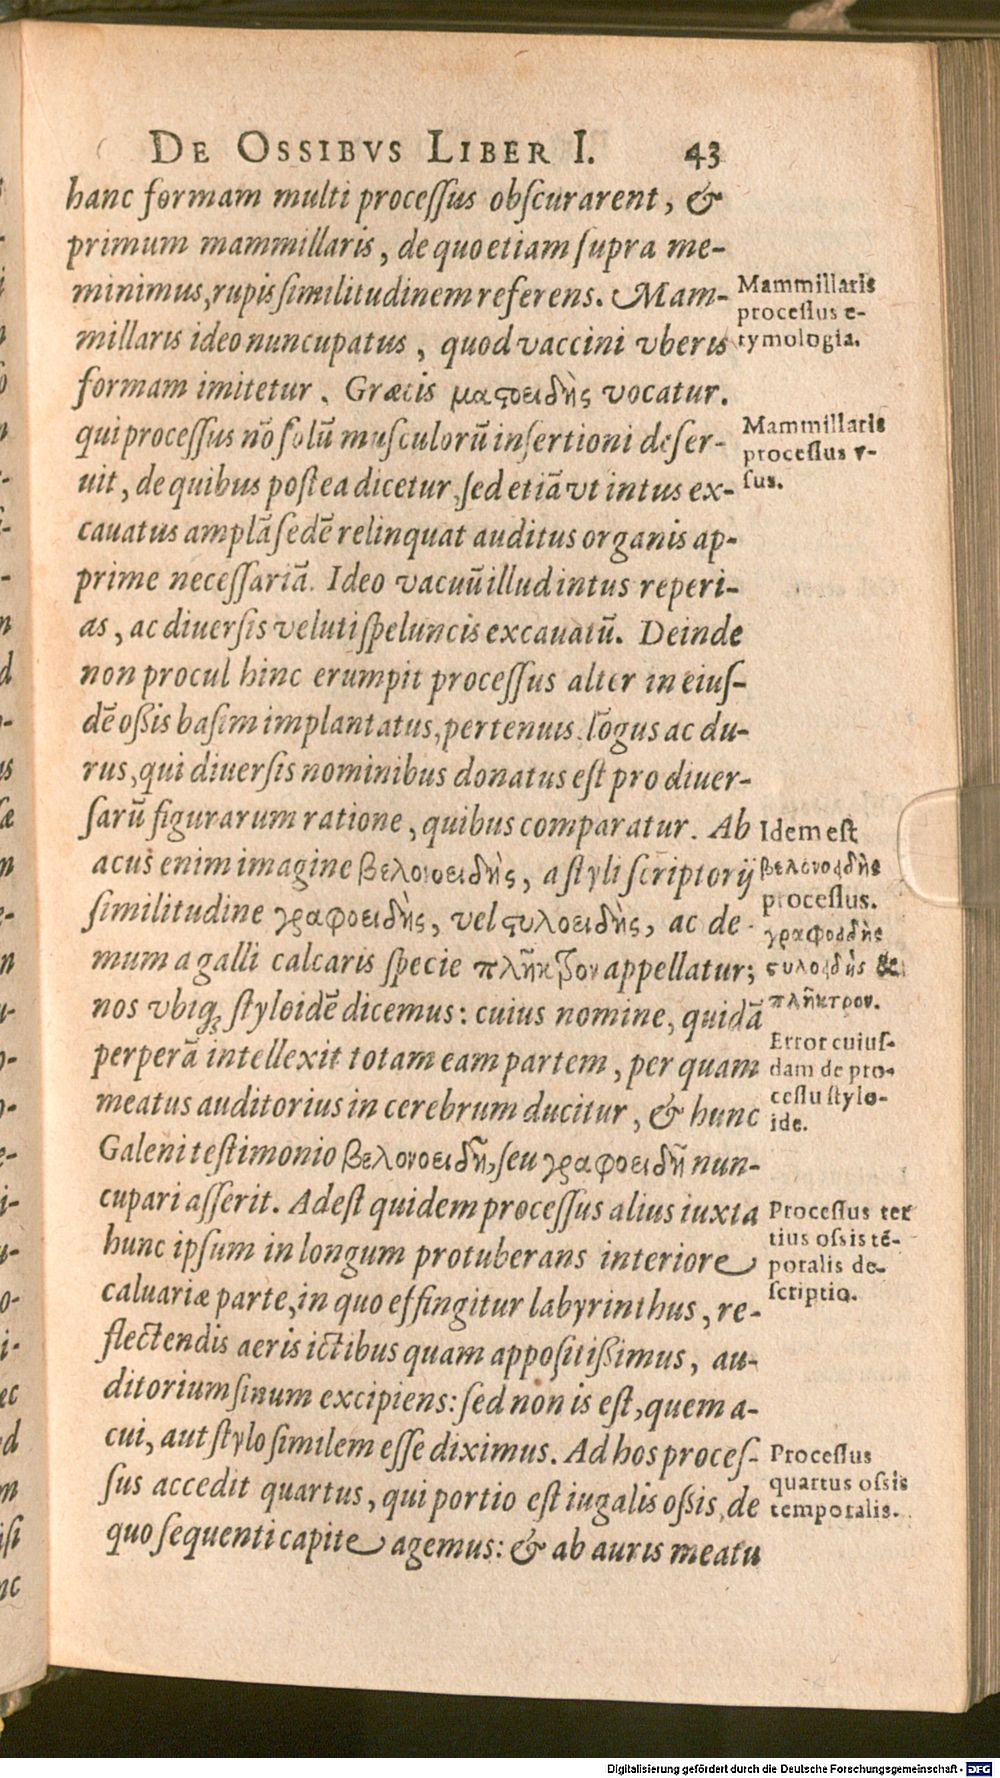 DE OSSIBVS LIBER I. 43
hanc formam multi processus obscurarent, &
primum mammillaris, de quo etiam supra me-
minimus, rupis similitudinem referens. Mam-
millaris ideo nuncupatus, quod vaccini vberis
formam imitetur. Græcis μαςοειδὴς vocatur.
qui processus nō solū musculorū insertioni deser-
uit, de quibus postea dicetur, sed etiā vt intus ex-
cauatus amplā sedē relinquat auditus organis ap-
prime necessariā. Ideo vacuū illud intus reperi-
as, ac diuersis veluti speluncis excauatū. Deinde
non procul hinc erumpit processus alter in eius-
dē ossis basim implantatus, pertenuis, lōgus ac du-
rus, qui diuersis nominibus donatus est pro diuer-
sarū figurarum ratione, quibus comparatur. Ab
acus enim imagine βελονοειδὴς, a styli scriptorij
similitudine γραφοειδὴς, vel ςυλοειδὴς, ac de-
mum a galli calcaris specie πλῆκτρον appellatur;
nos vbiq; styloidē dicemus: cuius nomine, quidā
perperā intellexit totam eam partem, per quam
meatus auditorius in cerebrum ducitur, & hunc
Galeni testimonio βελονοειδῆ, seu γραφοειδῆ nun-
cupari asserit. Adest quidem processus alius iuxta
hunc ipsum in longum protuberans interiore
caluariæ parte, in quo effingitur labyrinthus, re-
flectendis aeris ictibus quam appositissimus, au-
ditorium sinum excipiens: sed non is est, quem a-
cui, aut stylo similem esse diximus. Ad hos proces-
sus accedit quartus, qui portio est iugalis ossis, de
quo sequenti capite agemus: & ab auris meatu
Mammillaris
processus e-
tymologia.
Mammillaris
processus v-
sus.
Idem est
βελονοειδὴς
processus.
γραφοειδὴς
ςυλοειδὴς &
πλῆκτρον.
Error cuius-
dam de pro-
cessu stylo-
ide.
Processus ter
tius ossis tē-
poralis de-
scriptio.
Processus
quartus ossis
temporalis.
Digitalisierung gefördert durch die Deutsche Forschungsgemeinschaft - DFG